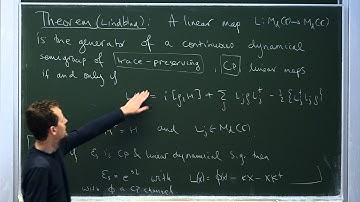 Theorem (Lindblad): A linear map L: M_d(C) → M_d(C)
is the generator of a continuous dynamical
semigroup of trace-preserving, CP linear maps
if and only if
= i [ρ, H] + ∑_j L_j ρ L_j^† - ½ { L_j^† L_j, ρ }
= H and L_j ∈ M_d(C)
is CP & linear dynamical s.g. then
= e^{sL} with L(x) = φ(x) - κx - xκ^†
with φ a CP